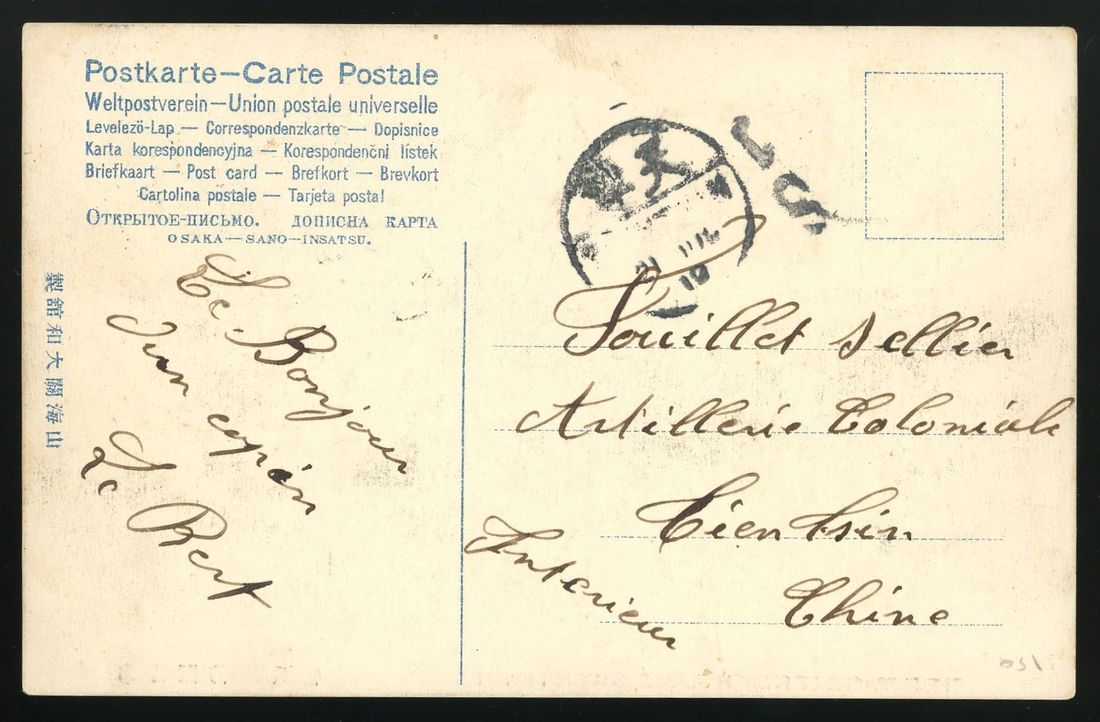 Postkarte—Carte Postale
Weltpostverein—Union postale universelle
Levelezö-Lap — Correspondenzkarte — Dopisnice
Karta korespondencyjna — Korespondenční lístek
Briefkaart — Post card — Brefkort — Brevkort
Cartolina postale — Tarjeta postal
Открытое-письмо. дописна карта
OSAKA—SANO—INSATSU.
山海關大和舘製
Le Bonjour
d'un copain
Le Bert
天
Souillet Sellier
Artillerie Coloniale
Tientsin
Chine
Interieur
150